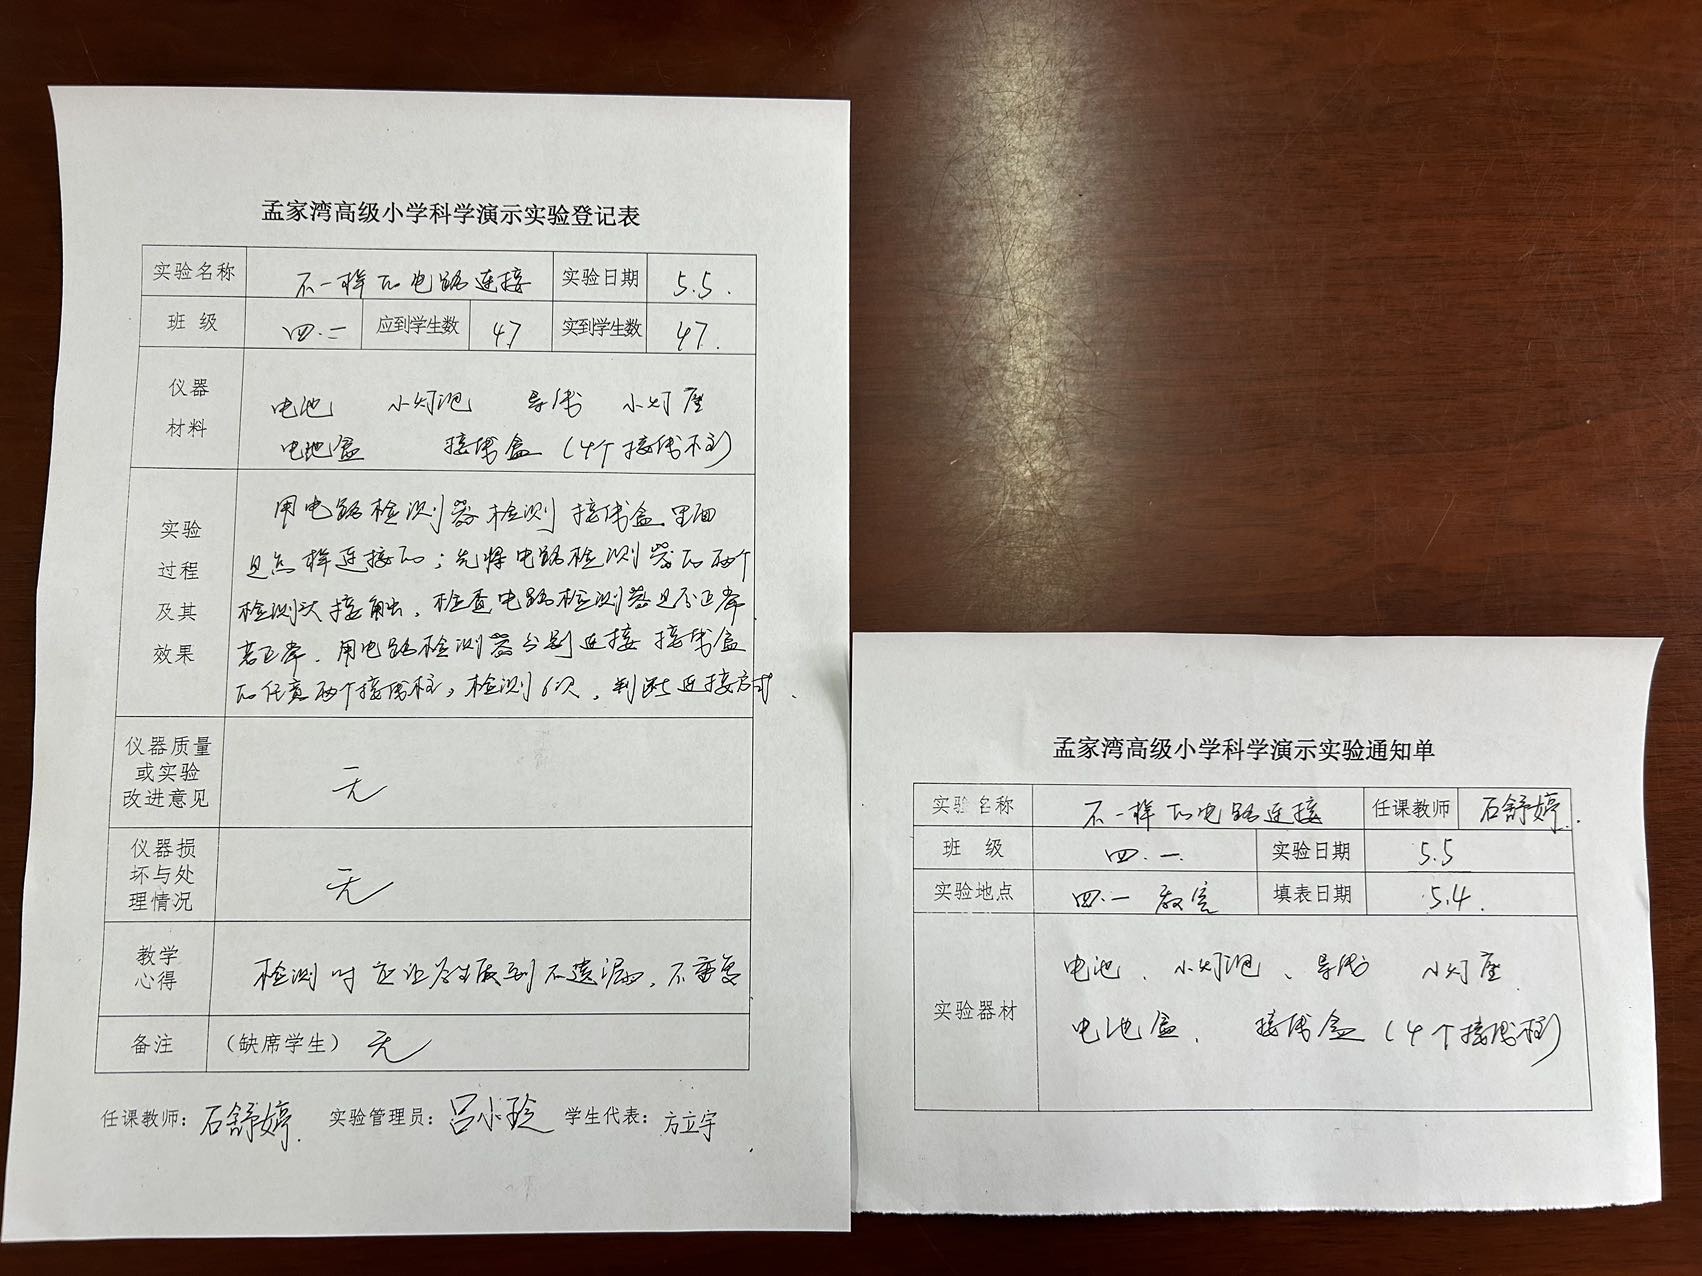 孟家湾高级小学科学演示实验登记表
实验名称 不一样的电路连接 实验日期 5.5.
班 级 四.二 应到学生数 47 实到学生数 47.
仪器
材料
电池 小灯泡 导线 小灯座
电池盒 接线盒(4个接线柱)
实验
过程
及其
效果
用电路检测器检测接线盒里面
是怎样连接的;先将电路检测器的两个
检测头接触,检查电路检测器是否正常
若正常,用电路检测器分别连接接线盒
的任意两个接线柱,检测6次,判断连接方式.
仪器质量
或实验
改进意见
无
仪器损
坏与处
理情况
无
教学
心得
检测时应让学生做到不遗漏,不重复
备注 (缺席学生) 无
任课教师: 石舒婷. 实验管理员: 吕小珍 学生代表: 方立宇
孟家湾高级小学科学演示实验通知单
实验名称 不一样的电路连接 任课教师 石舒婷.
班 级 四.一. 实验日期 5.5
实验地点 四.一 教室 填表日期 5.4.
实验器材
电池、小灯泡、导线 小灯座.
电池盒. 接线盒(4个接线柱)